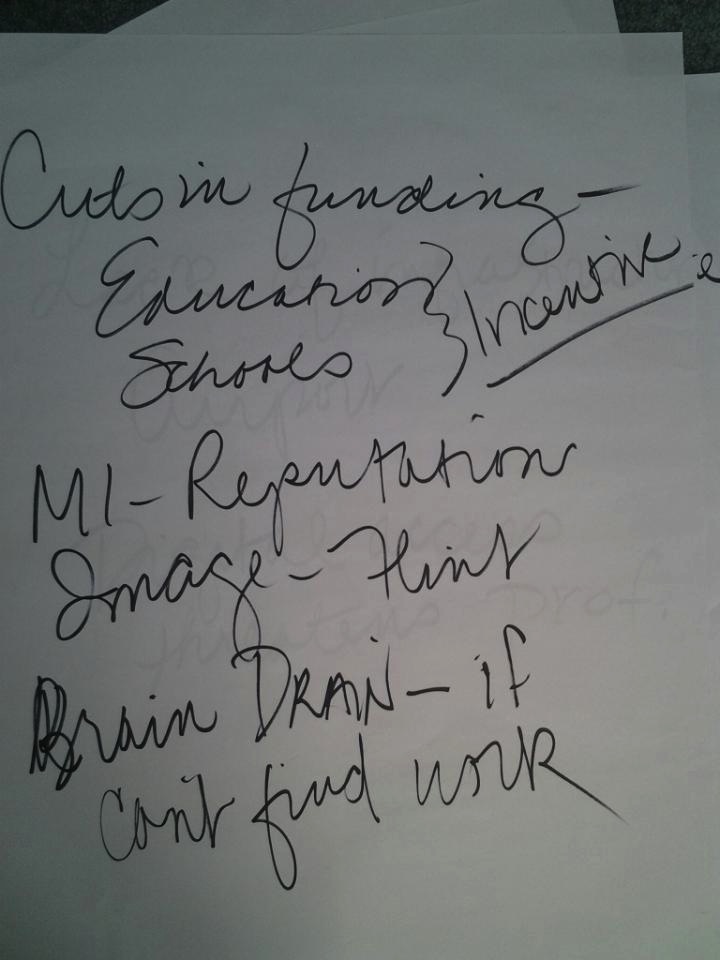 Cuts in funding -
Education } Incentive
Schools
MI - Reputation
Image - Flint
Brain DRAIN - if
Can't find work